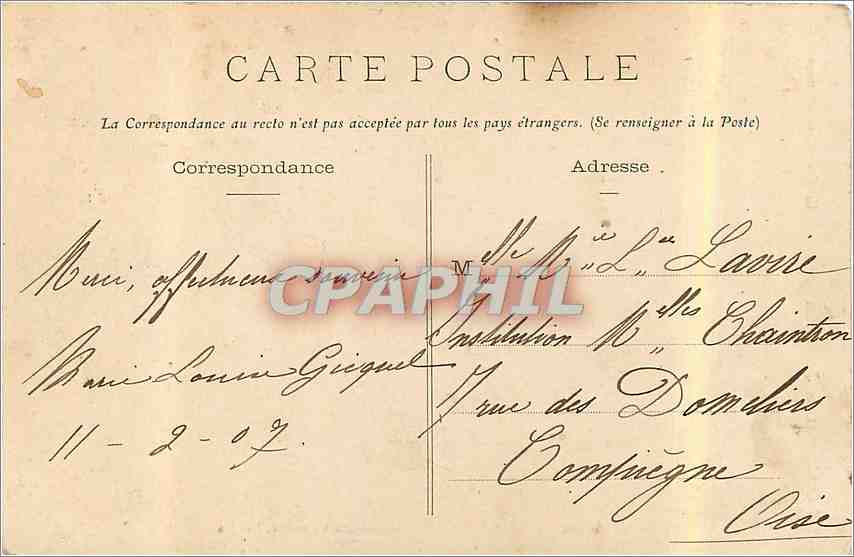 CARTE POSTALE
La Correspondance au recto n'est pas acceptée par tous les pays étrangers. (Se renseigner à la Poste)
Correspondance
Merci, affectueux souvenir
Marie Louise Gicquel
11 - 2 - 07.
Adresse.
Melle Mie Lse Lavire
Institution Melles Chaintron
7 rue des Domeliers
Compiègne
Oise
CPAPHIL